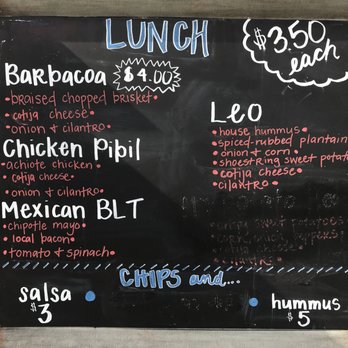 LUNCH
$3.50
each
Barbacoa $4.00
• braised chopped brisket •
• cotija cheese •
• onion & cilantro •
Chicken Pibil
• achiote chicken •
• cotija cheese •
• onion & cilantro •
Mexican BLT
• chipotle mayo •
• local bacon •
• tomato & spinach •
Leo
• house hummus •
• spiced-rubbed plantain
• onion & corn •
• shoestring sweet potato
• cotija cheese •
• cilantro •
CHIPS and...
salsa
$3
hummus
$5